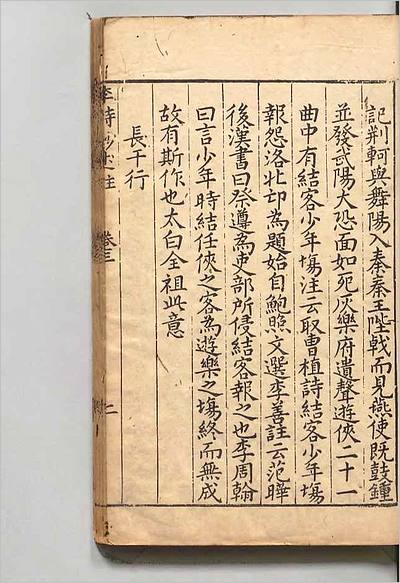 記荆軻與舞陽入秦秦王陛戟而見燕使既鼓鍾
並發武陽大恐面如死灰樂府遺聲遊俠二十一
曲中有結客少年塲注云取曹植詩結客少年塲
報怨洛北邙為題始自鮑照文選李善註云范曄
後漢書曰祭遵為吏部所侵結客報之也李周翰
曰言少年時結任俠之客為遊樂之塲終而無成
故有斯作也太白全祖此意
長干行
李詩鈔 註
卷三